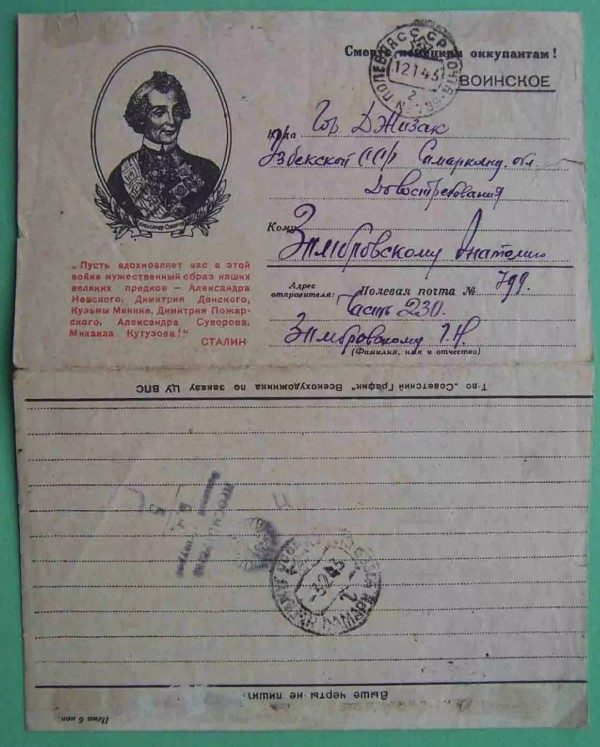 Смерть немецким оккупантам!
ВОИНСКОЕ
ПОЛЕВАЯ ПОЧТА СССР
12 1 43
Куда Гор Джизак
Узбекской ССР Самарканд. обл
Довостребования
Кому
Зимбровскому Анатолию
Адрес отправителя: Полевая почта № 799.
Часть 230.
Зимбровскому
(Фамилия, имя и отчество)
Александр Суворов
„Пусть вдохновляет вас в этой
войне мужественный образ наших
великих предков — Александра
Невского, Димитрия Донского,
Кузьмы Минина, Димитрия Пожар-
ского, Александра Суворова,
Михаила Кутузова!"
СТАЛИН
Т-во „Советский График" Всекохудожника по заказу ЦУ ВПС
Выше черты не пишите
Цена 6 коп.